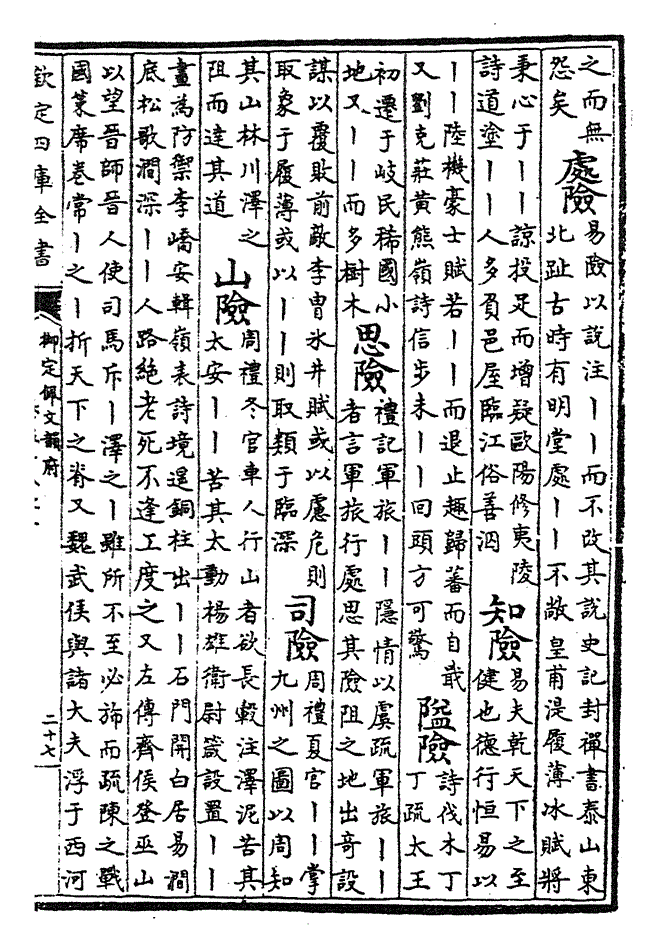 之而無
怨矣
處險
易險以說注丨丨而不改其說史記封禪書泰山東
北趾古時有明堂處丨丨不敞皇甫湜履薄冰賦將
秉心于丨丨諒投足而增疑歐陽修夷陵
詩道塗丨丨人多負邑屋臨江俗善泅
知險
易夫乾天下之至
健也德行恒易以
丨丨陸機豪士賦若丨丨而退止趣歸蕃而自戢
又劉克莊黃熊嶺詩信步未丨丨回頭方可驚
隘險
詩伐木丁
丁疏太王
初遷于岐民稀國小
地又丨丨而多樹木
思險
禮記軍旅丨丨隱情以虞疏軍旅丨丨
者言軍旅行處思其險阻之地出奇設
謀以覆敗前敵李曹氷井賦或以慮危則
取象于履薄或以丨丨則取類于臨深
司險
周禮夏官丨丨掌
九州之圖以周知
其山林川澤之
阻而達其道
山險
周禮冬官車人行山者欲長轂注澤泥苦其
太安丨丨苦其太動楊雄衛尉箴設置丨丨
晝為防禦李嶠安輯嶺表詩境遥銅柱出丨丨石門開白居易澗
底松歌澗深丨丨人路絶老死不逢工度之又左傳齊侯登巫山
以望晉師晉人使司馬斥丨澤之丨雖所不至必斾而疏陳之戰
國策席卷常丨之丨折天下之脊又魏武侯與諸大夫浮于西河
欽定四庫全書
御定佩文韻府
二十七